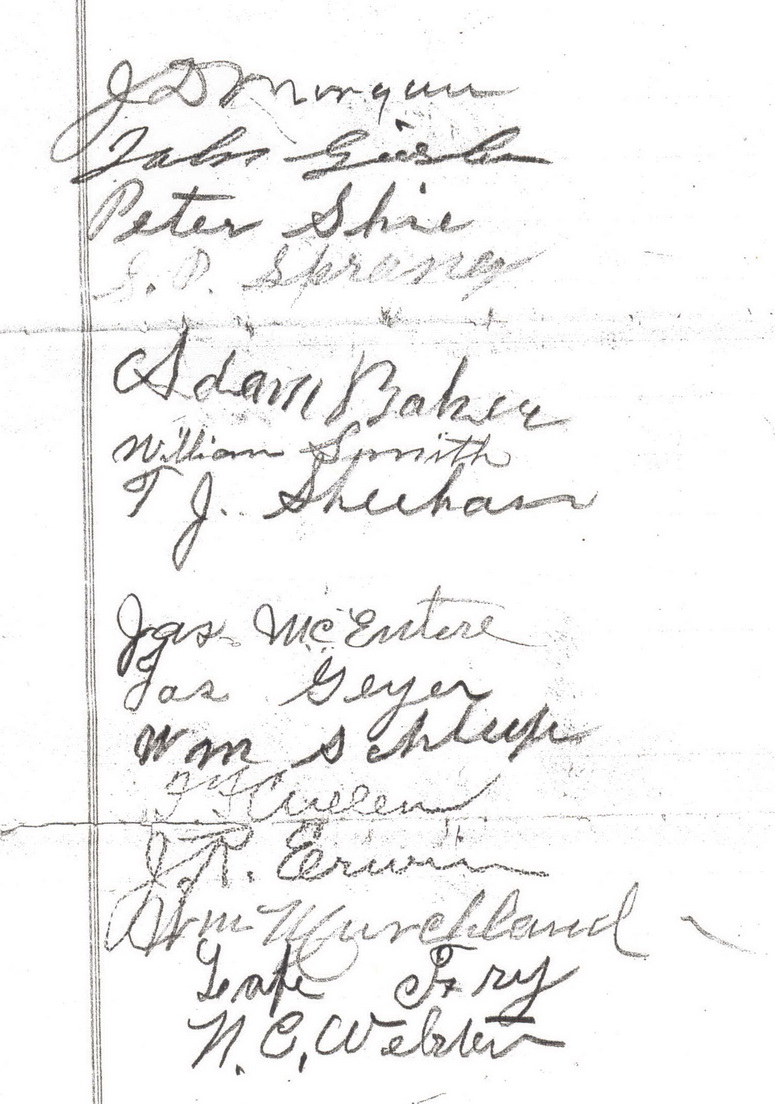 J D Morgan
Peter Shie
S. P. Sprang
Adam Baker
William Smith
T J. Sheehan
Jas. McEntire
Jos Geyer
Wm Schlup
Cullen
J. R. Erwin
Wm Murchland
Fry
N. C. Webster